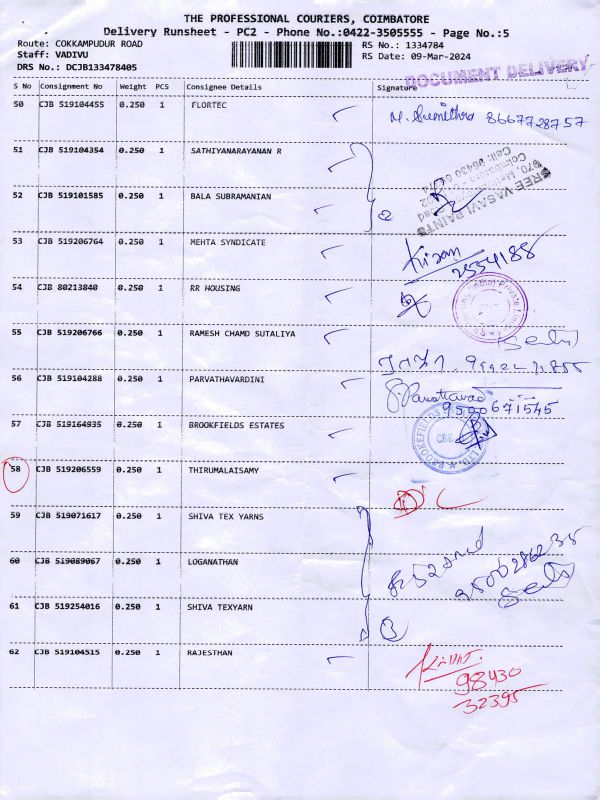 THE PROFESSIONAL COURIERS, COIMBATORE
Delivery Runsheet - PC2 - Phone No.:0422-3505555 - Page No.:5
Route: COKKAMPUDUR ROAD
RS No.: 1334784
Staff: VADIVU
RS Date: 09-Mar-2024
DRS No.: DCJB133478405
DOCUMENT DELIVERY
S No Consignment No Weight PCS Consignee Details Signature
50 CJB 519104455 0.250 1 FLORTEC
8667728757
51 CJB 519104354 0.250 1 SATHIYANARAYANAN R
SREE VASAVI PAINTS
52 CJB 519101585 0.250 1 BALA SUBRAMANIAN
53 CJB 519206764 0.250 1 MEHTA SYNDICATE
Kiran
2554188
54 CJB 80213840 0.250 1 RR HOUSING
55 CJB 519206766 0.250 1 RAMESH CHAMD SUTALIYA
56 CJB 519104288 0.250 1 PARVATHAVARDINI
9500671545
57 CJB 519164935 0.250 1 BROOKFIELDS ESTATES
58 CJB 519206559 0.250 1 THIRUMALAISAMY
59 CJB 519071617 0.250 1 SHIVA TEX YARNS
60 CJB 519089067 0.250 1 LOGANATHAN
61 CJB 519254016 0.250 1 SHIVA TEXYARN
62 CJB 519104515 0.250 1 RAJESTHAN
98430
32395